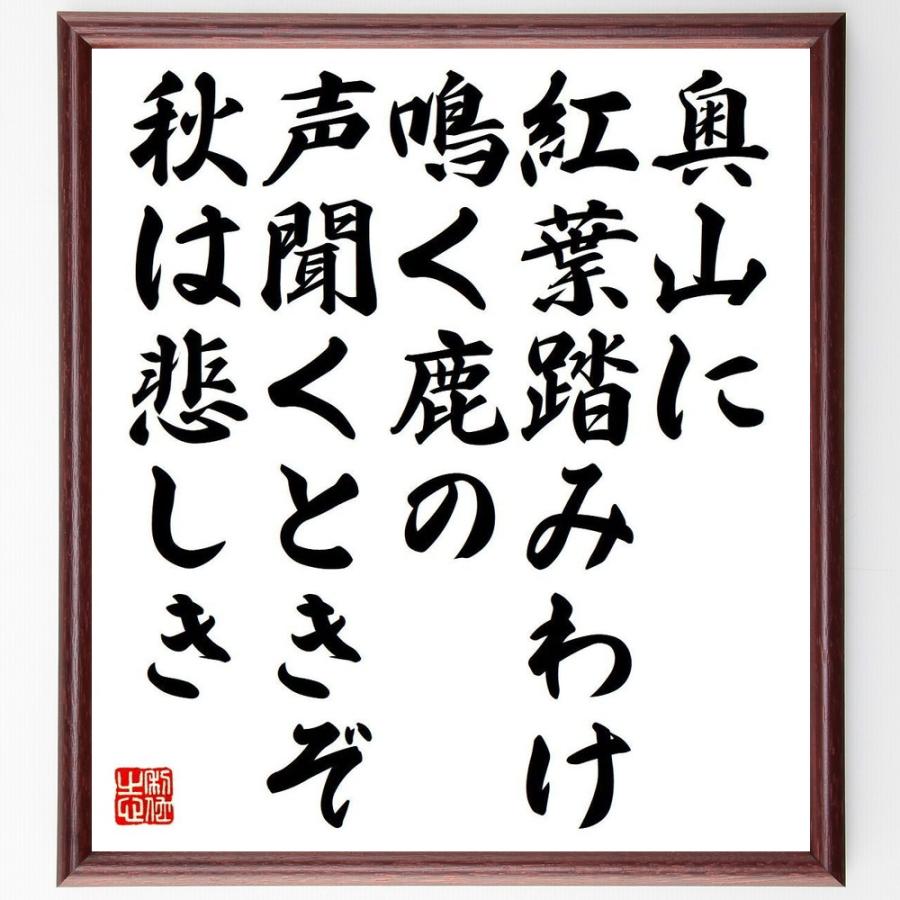 奥山に
紅葉踏みわけ
鳴く鹿の
声聞くときぞ
秋は悲しき